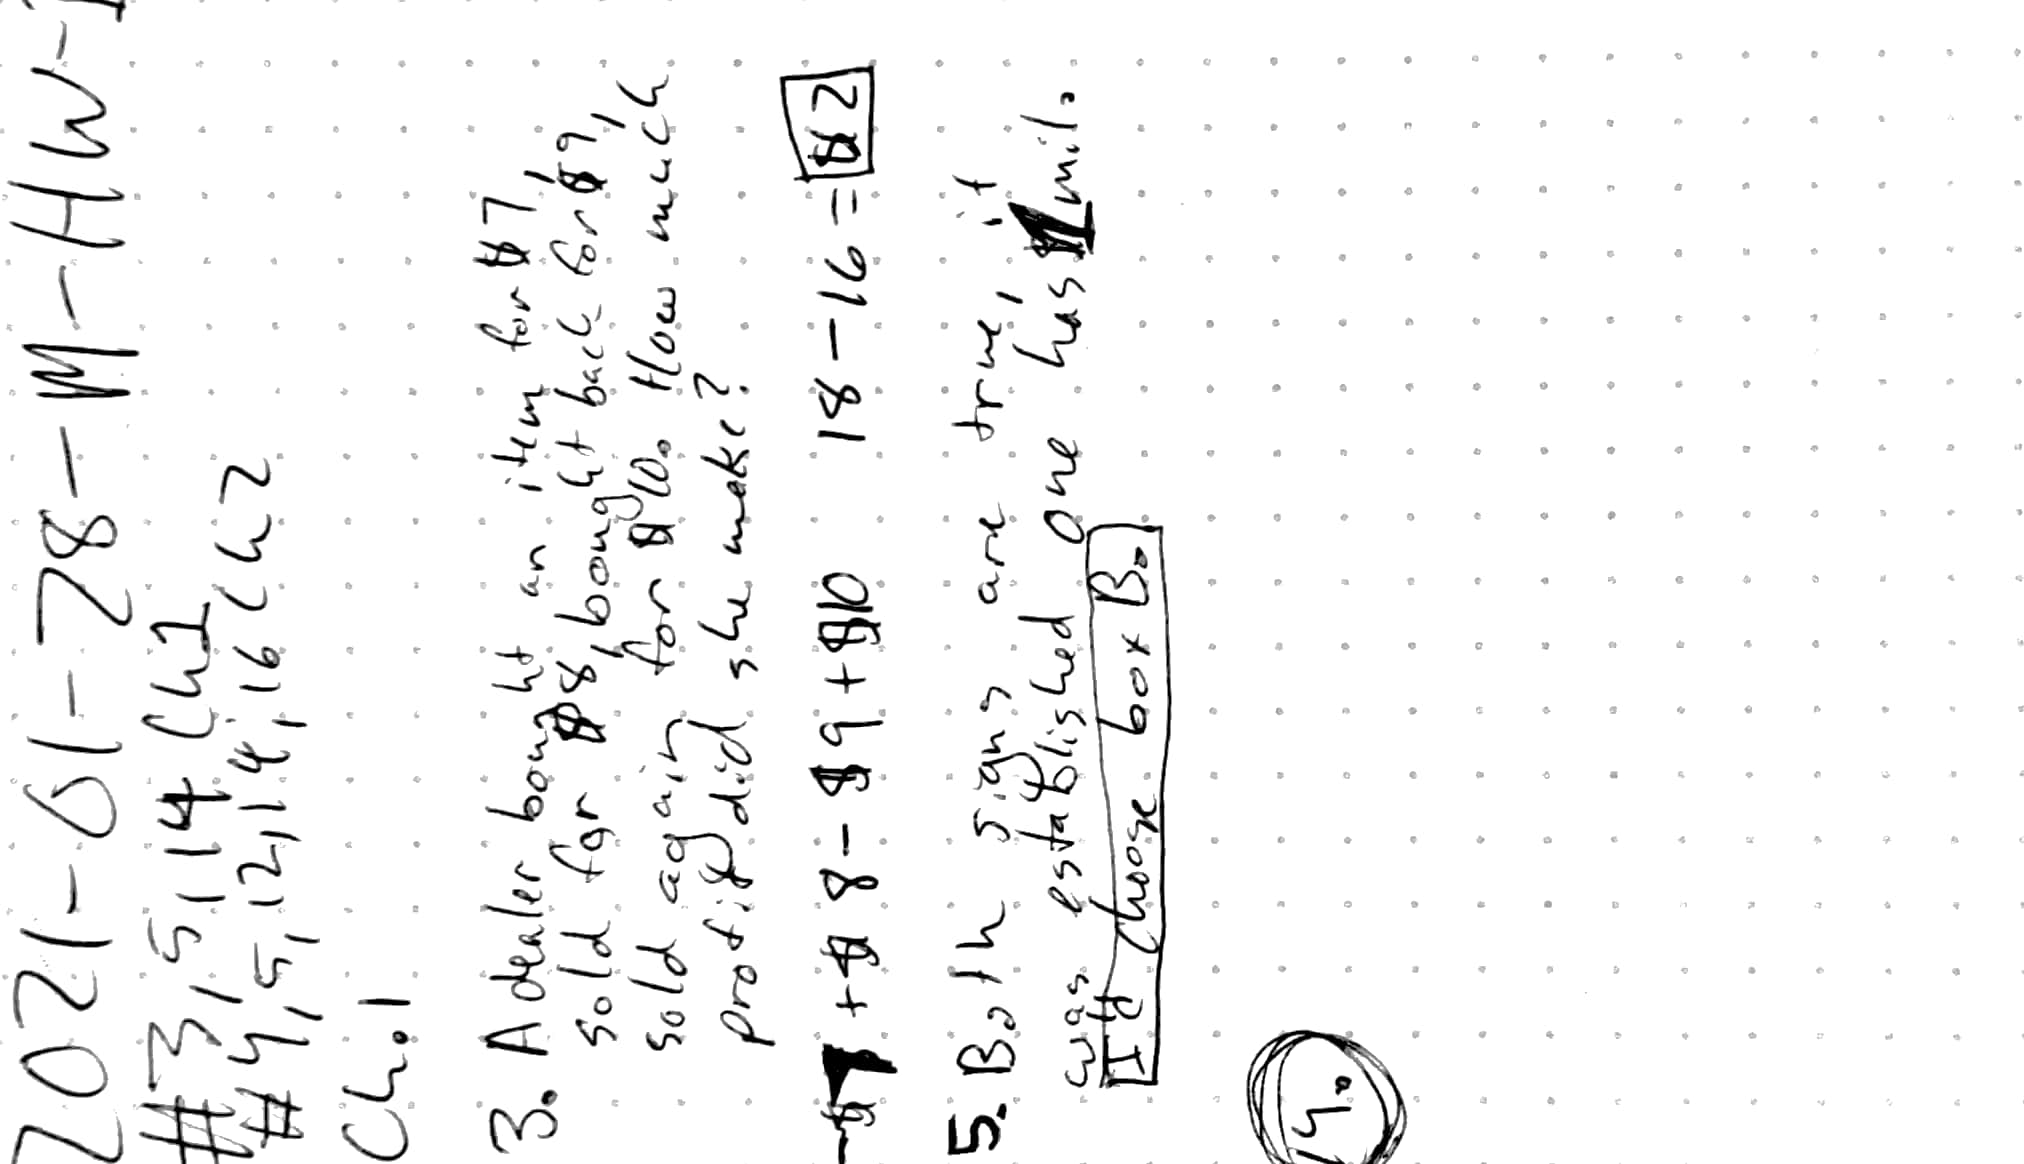 2021-01-28-M-HW-
#3,5,14 Ch1
#4,5,12,14,16 Ch2
Ch.1
3. A dealer bought an item for $7,
sold for $8, bought back for $9,
sold again for $10. How much
profit did she make?
-$7+$8-$9+$10 18-16=$2
5. Both signs are true, it
was established one has 1 mil.
I'd choose box B.
14.